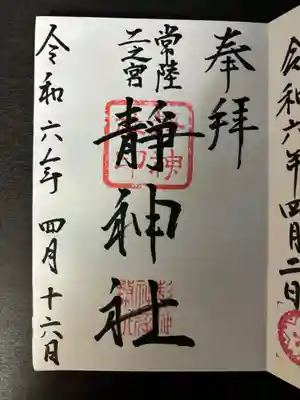 奉拝
常陸
二之宮
靜神社
令和六年 四月 十六日
令和六年四月二日